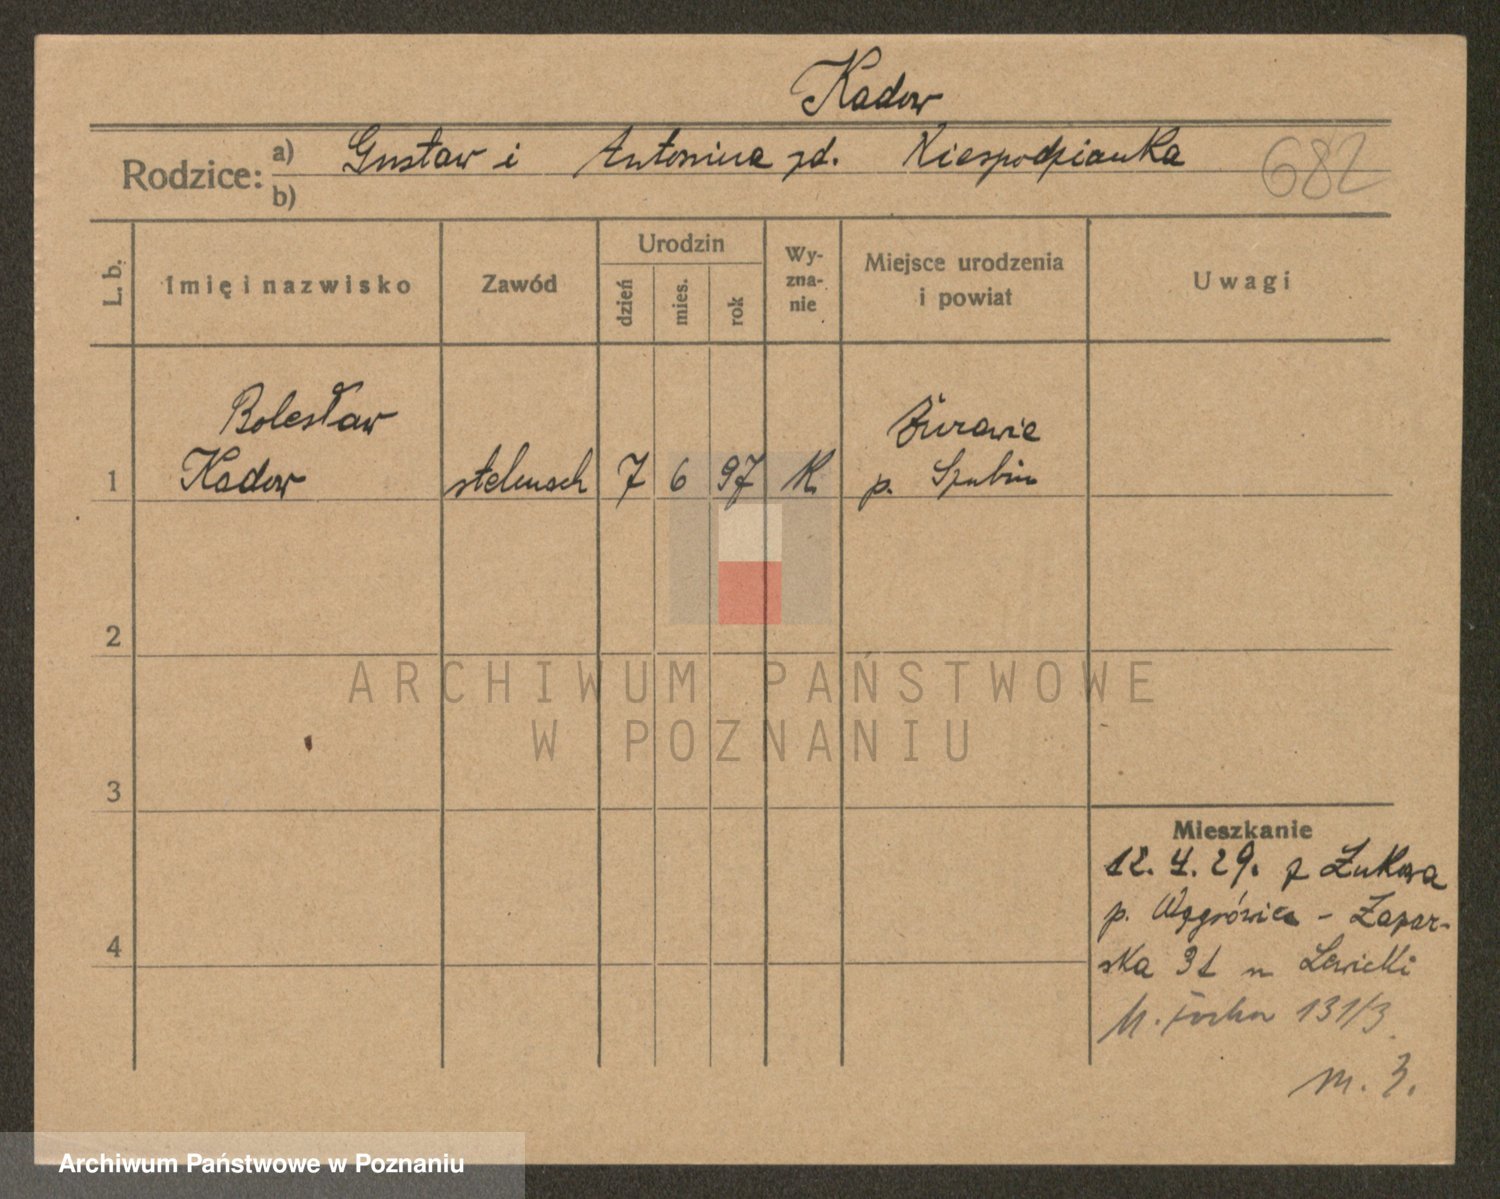 Kadow
Rodzice: a) Gustaw i Antonina zd. Niespodzianka
b)
682
L. b.
Imię i nazwisko
Zawód
Urodzin
dzień
mies.
rok
Wy-
zna-
nie
Miejsce urodzenia
i powiat
Uwagi
Bolesław
1 Kadow stelmach 7 6 97 K.
Żurawie
p. Szubin
2
3
4
Mieszkanie
12. 4. 29. z Łukowa
p. Wągrówiec - Zagór-
ska 31 u Lewicki
M. Focha 131/3
m. 3.
ARCHIWUM PAŃSTWOWE
W POZNANIU
Archiwum Państwowe w Poznaniu